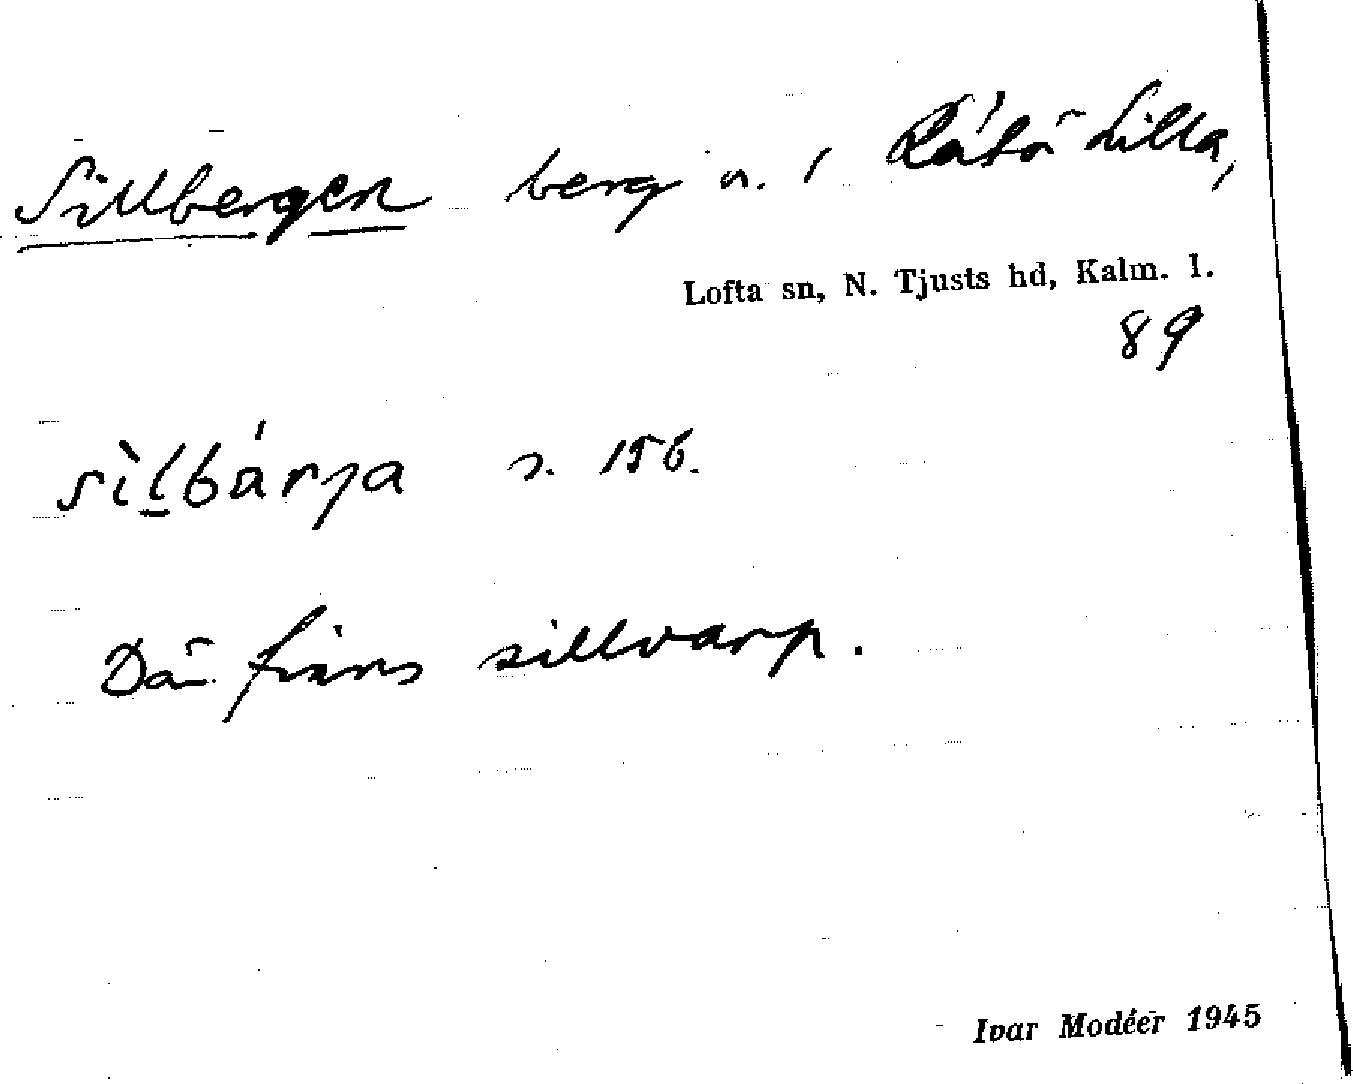 Sillbergen berg n. i Råsö Lilla,
Lofta sn, N. Tjusts hd, Kalm. l.
89
silbárja s. 156.
Där finns sillvarp.
Ivar Modéer 1945